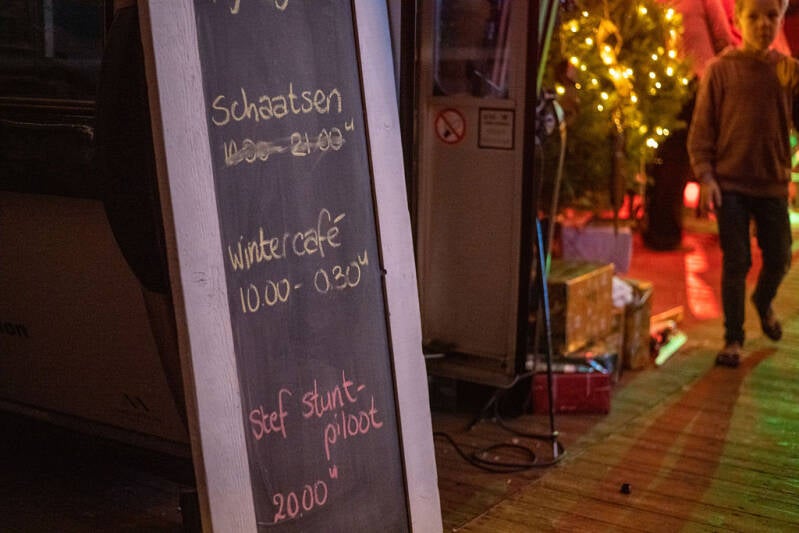 Schaatsen
10.00 - 21.00 u
Wintercafé
10.00 - 0.30 u
Stef stunt-
piloot
20.00 u